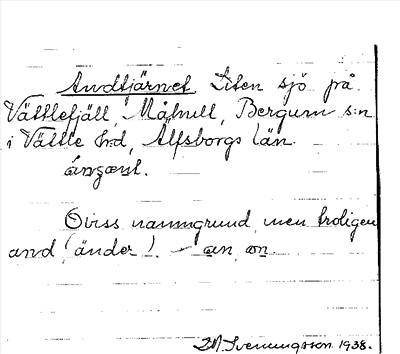 Andtjärnet Liten sjö på
Vättlefjäll, Bergum s:n
i Vättle hrd, Älfsborgs län.
Oviss namngrund, men troligen
and (änder). – an, on
Svenungsson 1938.